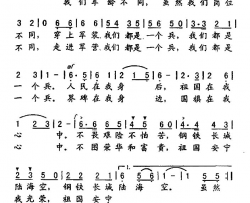 我们年龄不同，虽然我们岗位
3 2 | 0 6 6 6 | 6 5 4 3 5 | 5 6 5 0 | 3· 3 2 1 |
不同，穿上军装我们都是一个兵，我们都是
不同，走进军营我们都是一个兵，我们都是
2 3 | 1 - | 6· 5 | 6 1 | 2 1 5 | 6 - | 6· 1 |
一个兵。人民在我身后，祖国在我
一个兵。界碑在我身边，国旗在我
1 2 3 | 2 - | 6· 6 6 5 | 4 4 5 6 | 3 5 2 3 |
心中。不畏艰险不怕苦，钢铁长城
心中。不图荣华和富贵，祖国安宁
1.
2 3 5 0 | 5 5 2 3 | 2 1 6 | 1 - | 1
陆海空。钢铁长城陆海空。虽然
我光荣，祖国安宁